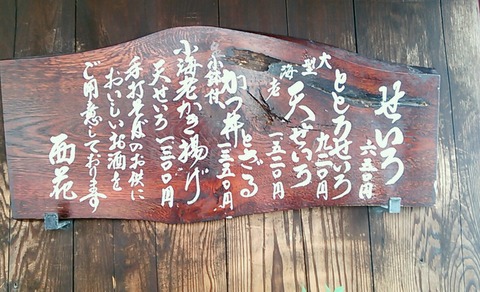 せいろ
六五〇円
ととろせいろ
九二〇円
大型海老
天せいろ
一五二〇円
小鉢付
かつ丼とざる
一三五〇円
小海老かき揚げ
天せいろ 一二三〇円
手打そばのお供に
おいしいお酒を
ご用意しております